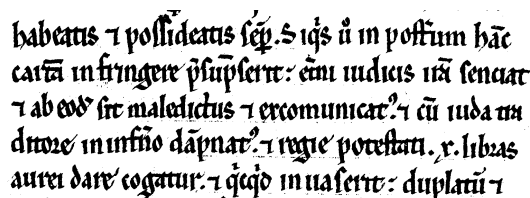 habeatis ⁊ possideatis semp̲. Siq̇s ů in posťum hāc
cartā infringere p̄sūpserit: etn̄i iudicis irā senciat
⁊ ab eoď sit maledictus ⁊ excomunicatꝰ. ⁊ cū iuda tra
ditore in inf̄no dāpnatꝰ. ⁊ regie potestati .x. libras
aurei dare cogatur. ⁊ q̇cq̇d inuaserit: duplatū ⁊